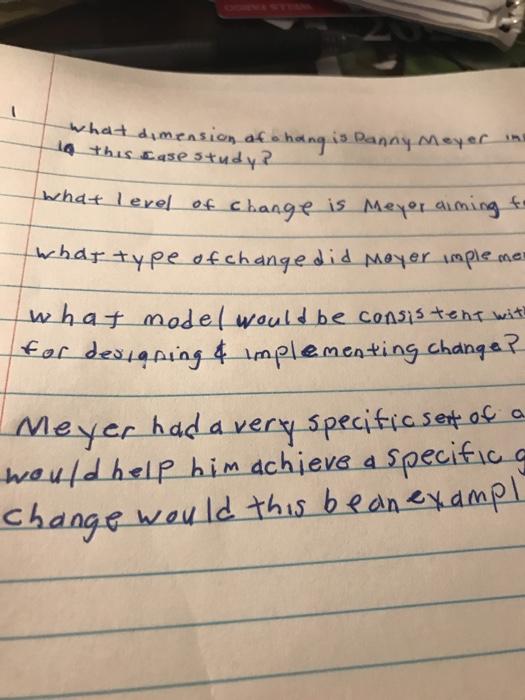 1
what dimension of chang is Danny Meyer in
in this case study?
what level of change is Meyer aiming f
what type of change did Meyer impleme
what model would be consistent wit
for designing & implementing change?
Meyer had a very specific set of a
would help him achieve a specific g
change would this be an exampl